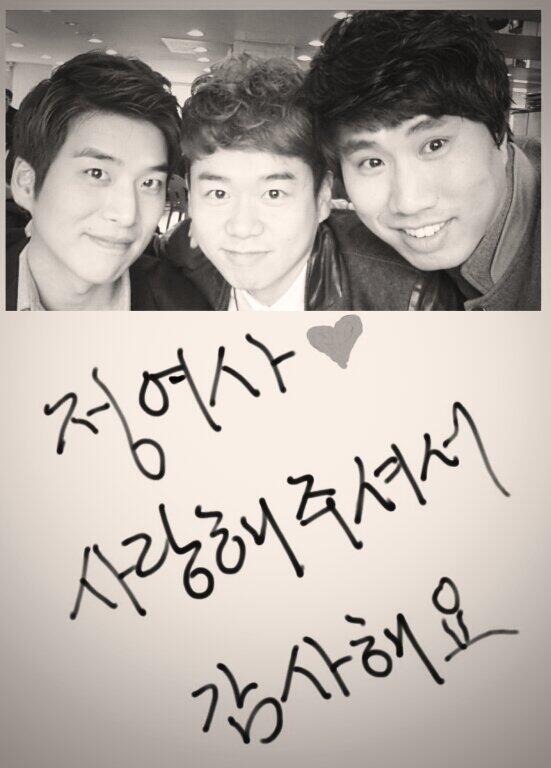 정여사
사랑해주셔서
감사해요